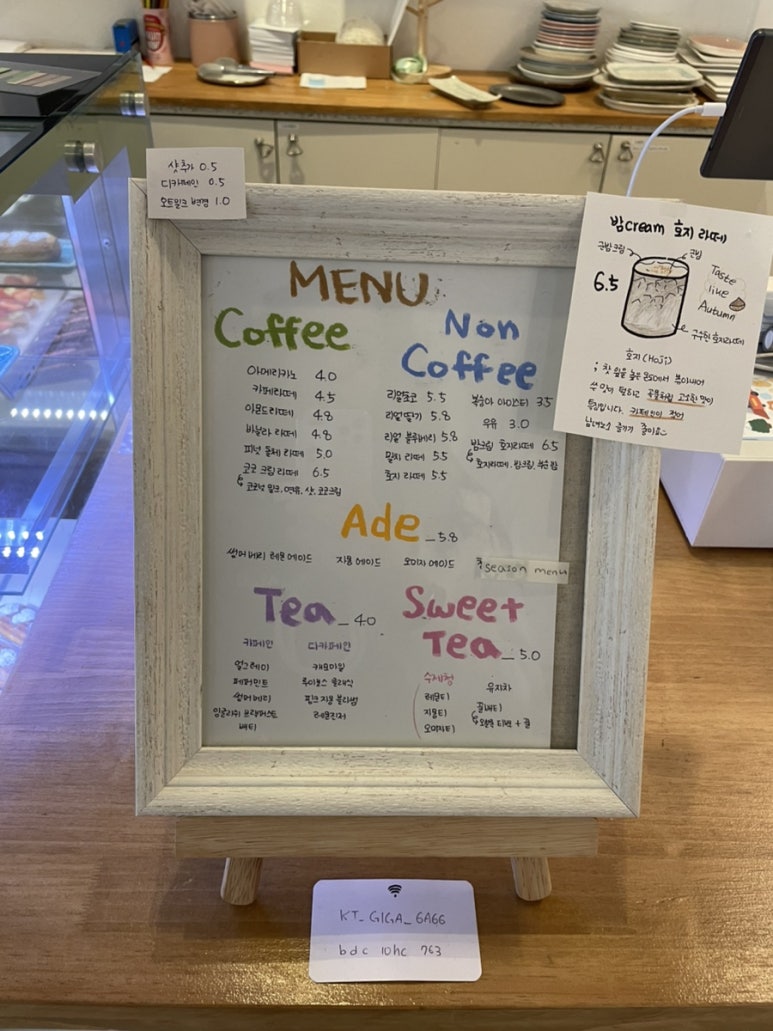 샷추가 0.5
디카페인 0.5
오트밀크 변경 1.0
밤cream 호지 라떼
군밤크림
군밤
6.5
Taste
like
Autumn
구수한 호지라떼
호지 (Hoji)
; 찻 잎을 높은 온도에서 볶아내어
쓴 맛이 덜하고 곡물처럼 고소한 맛이
특징입니다. 카페인이 적어
남녀노소 즐기기 좋아요~
MENU
Coffee
아메리카노 4.0
카페라떼 4.5
아몬드라떼 4.8
바닐라 라떼 4.8
피넛 돌체 라떼 5.0
코코 크림 라떼 6.5
코코넛 밀크, 연유, 샷, 코코크림
Non
Coffee
리얼초코 5.5
리얼 딸기 5.8
리얼 블루베리 5.8
말차 라떼 5.5
호지 라떼 5.5
복숭아 아이스티 3.5
우유 3.0
밤크림 호지라떼 6.5
호지라떼, 밤크림,
Ade _ 5.8
썸머 베리 레몬 에이드 자몽 에이드 오미자 에이드
season menu
Tea _ 4.0
카페인
얼그레이
페퍼민트
썸머 베리
잉글리쉬 브랙퍼스트
배티
디카페인
캐모마일
루이보스 클래식
핑크 자몽 블라썸
레몬진저
Sweet
Tea _ 5.0
수제청
레몬티
자몽티
오미자티
유자차
꿀배티
티백 + 꿀
KT_GIGA_6A66
bdc 10hc 763